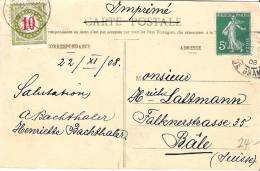 Imprimé
CARTE POSTALE
10
CORRESPONDANCE
ADRESSE
5c
22/XI/08.
08
Monsieur
Salutation
Hrich Saltzmann
A Bachthaler
Falknerstrasse 35
Henriette Bachthaler
Bâle
(Suisse)
24